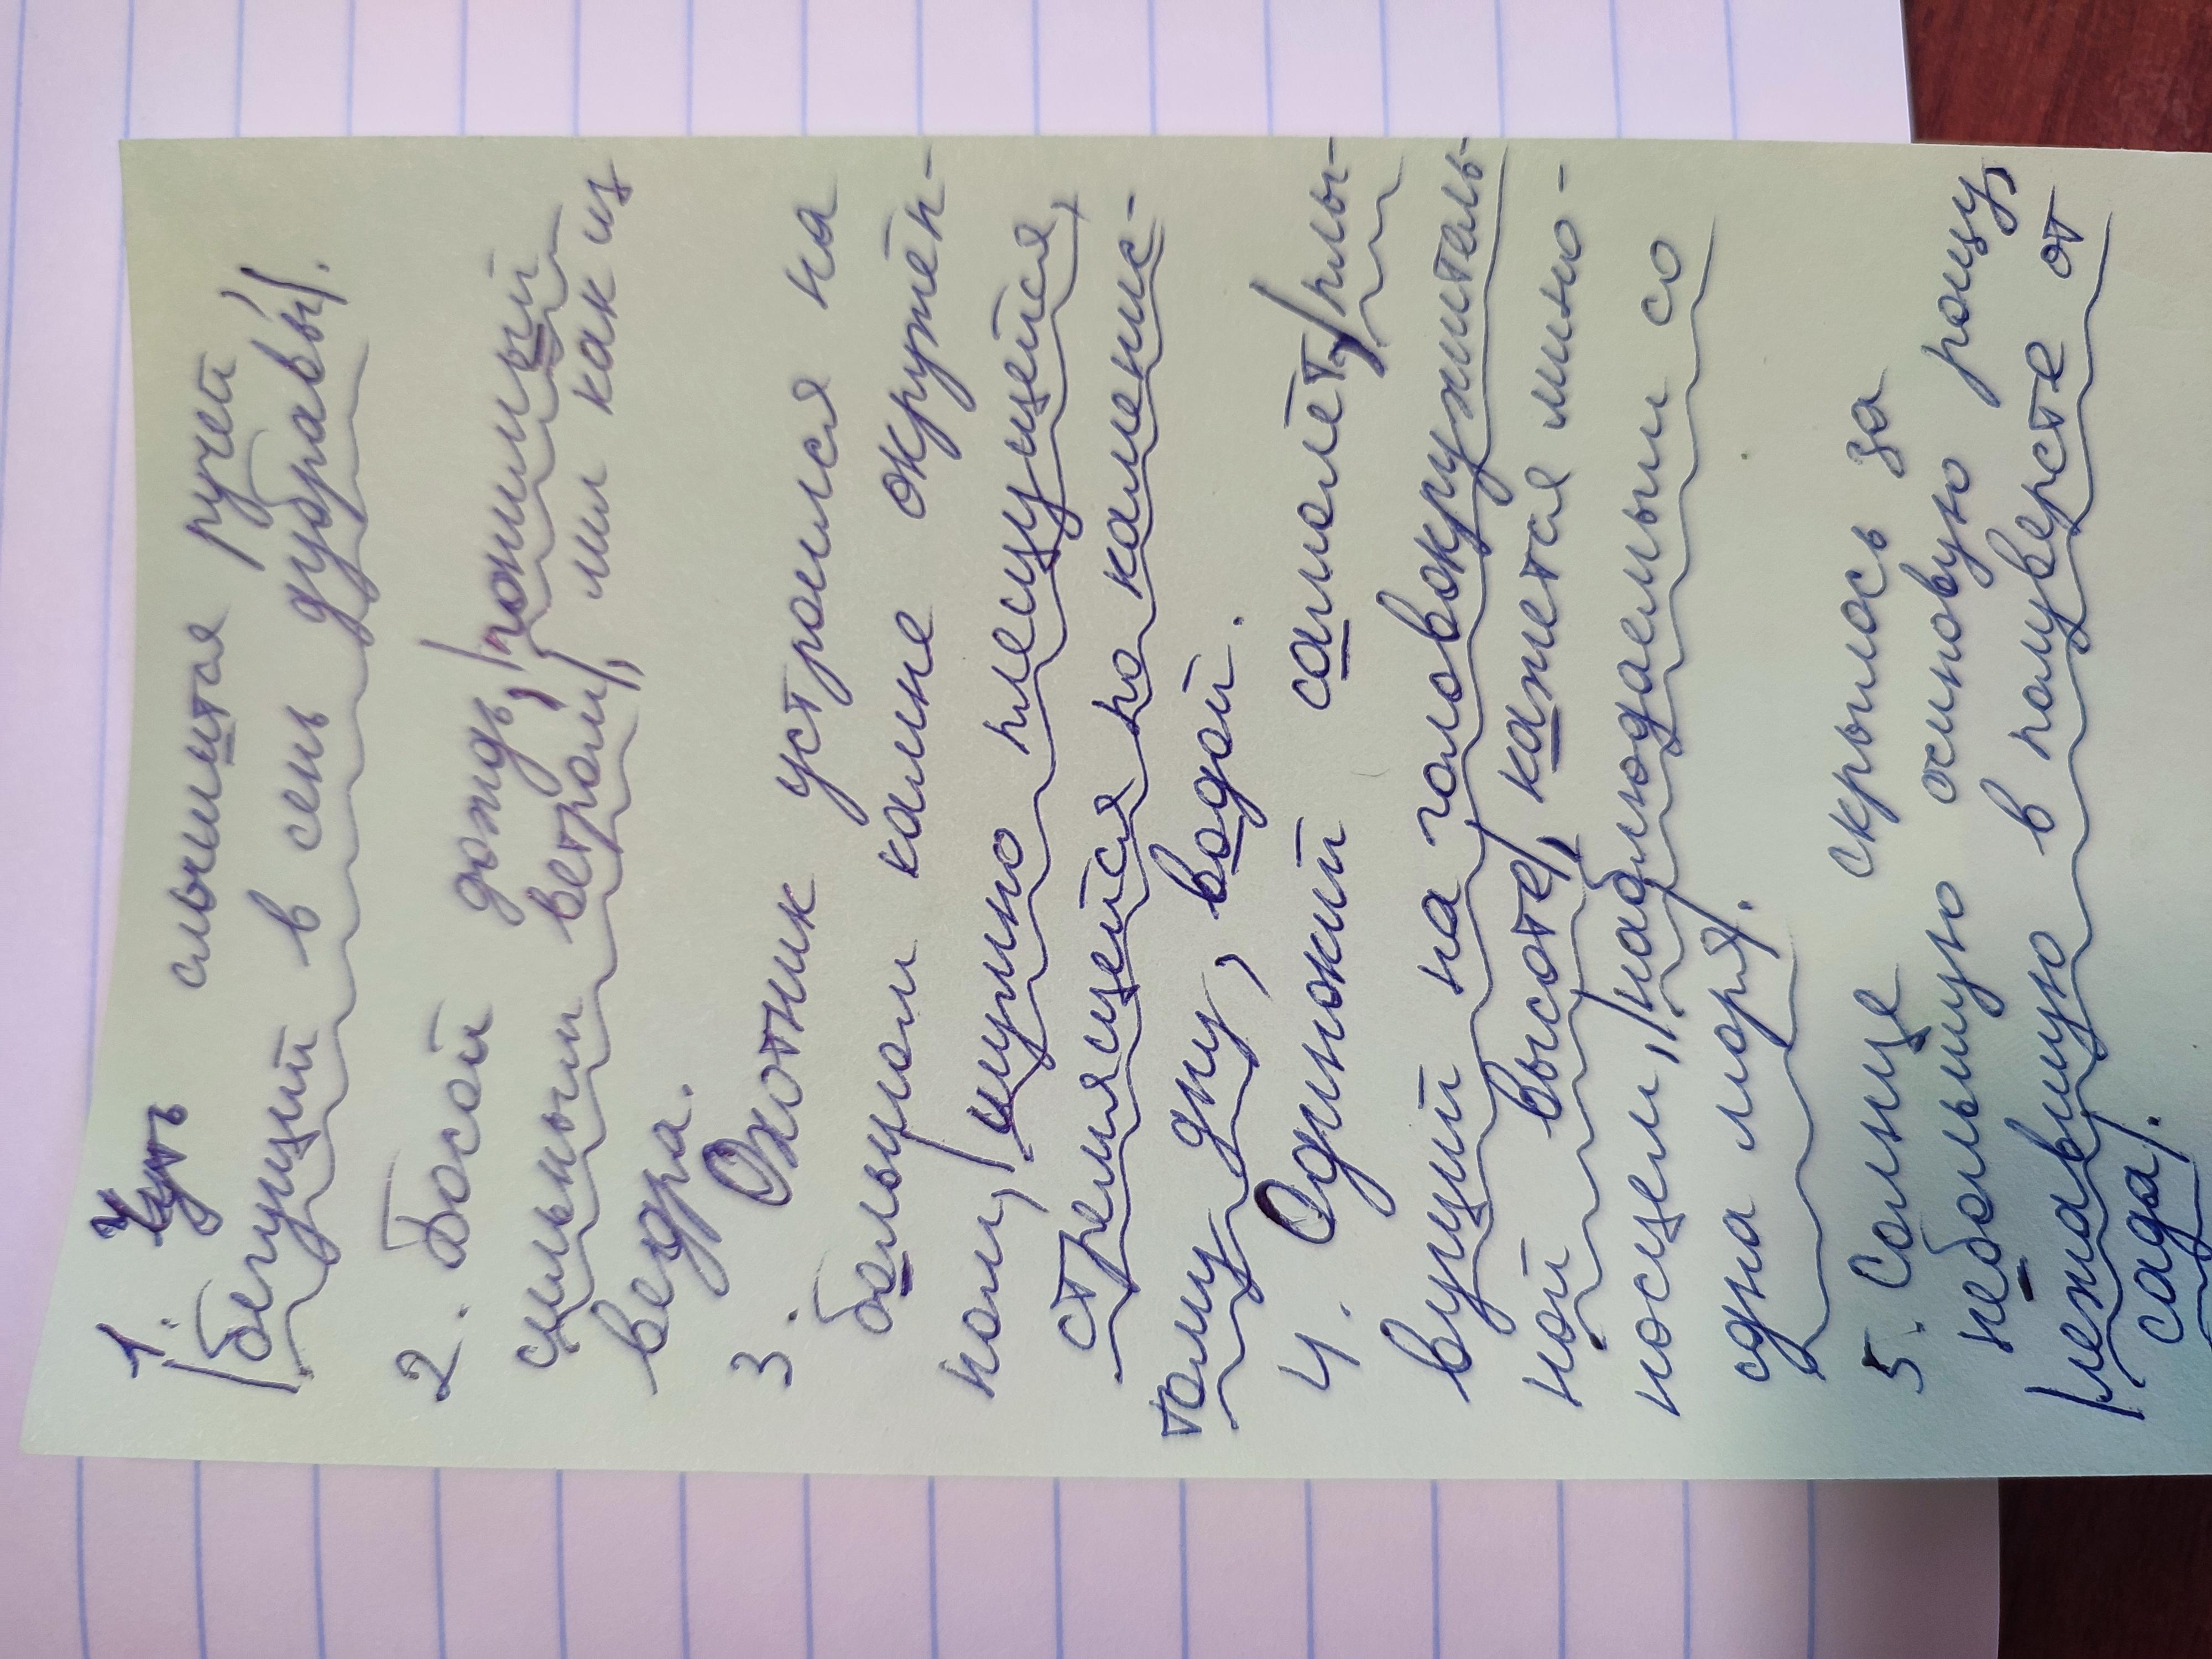 1. Чуть слышится ручей
|бегущий в сень дубравы|.
2. Босой дождь,|гонимый
сильным ветром|, лил как из
ведра.
3. Охотник устроился на
большом камне окружён-
ном,|шумно плещущейся,
стремящейся по каменис-
тому дну, водой.
4. Одинокий самолёт,|плы-
вущий на головокружитель-
ной высоте|, кажется мино-
носцем,|наблюдаемым со
дна моря|.
5. Солнце скрылось за
небольшую осиновую рощу,
|лежавшую в полуверсте от
сада|.